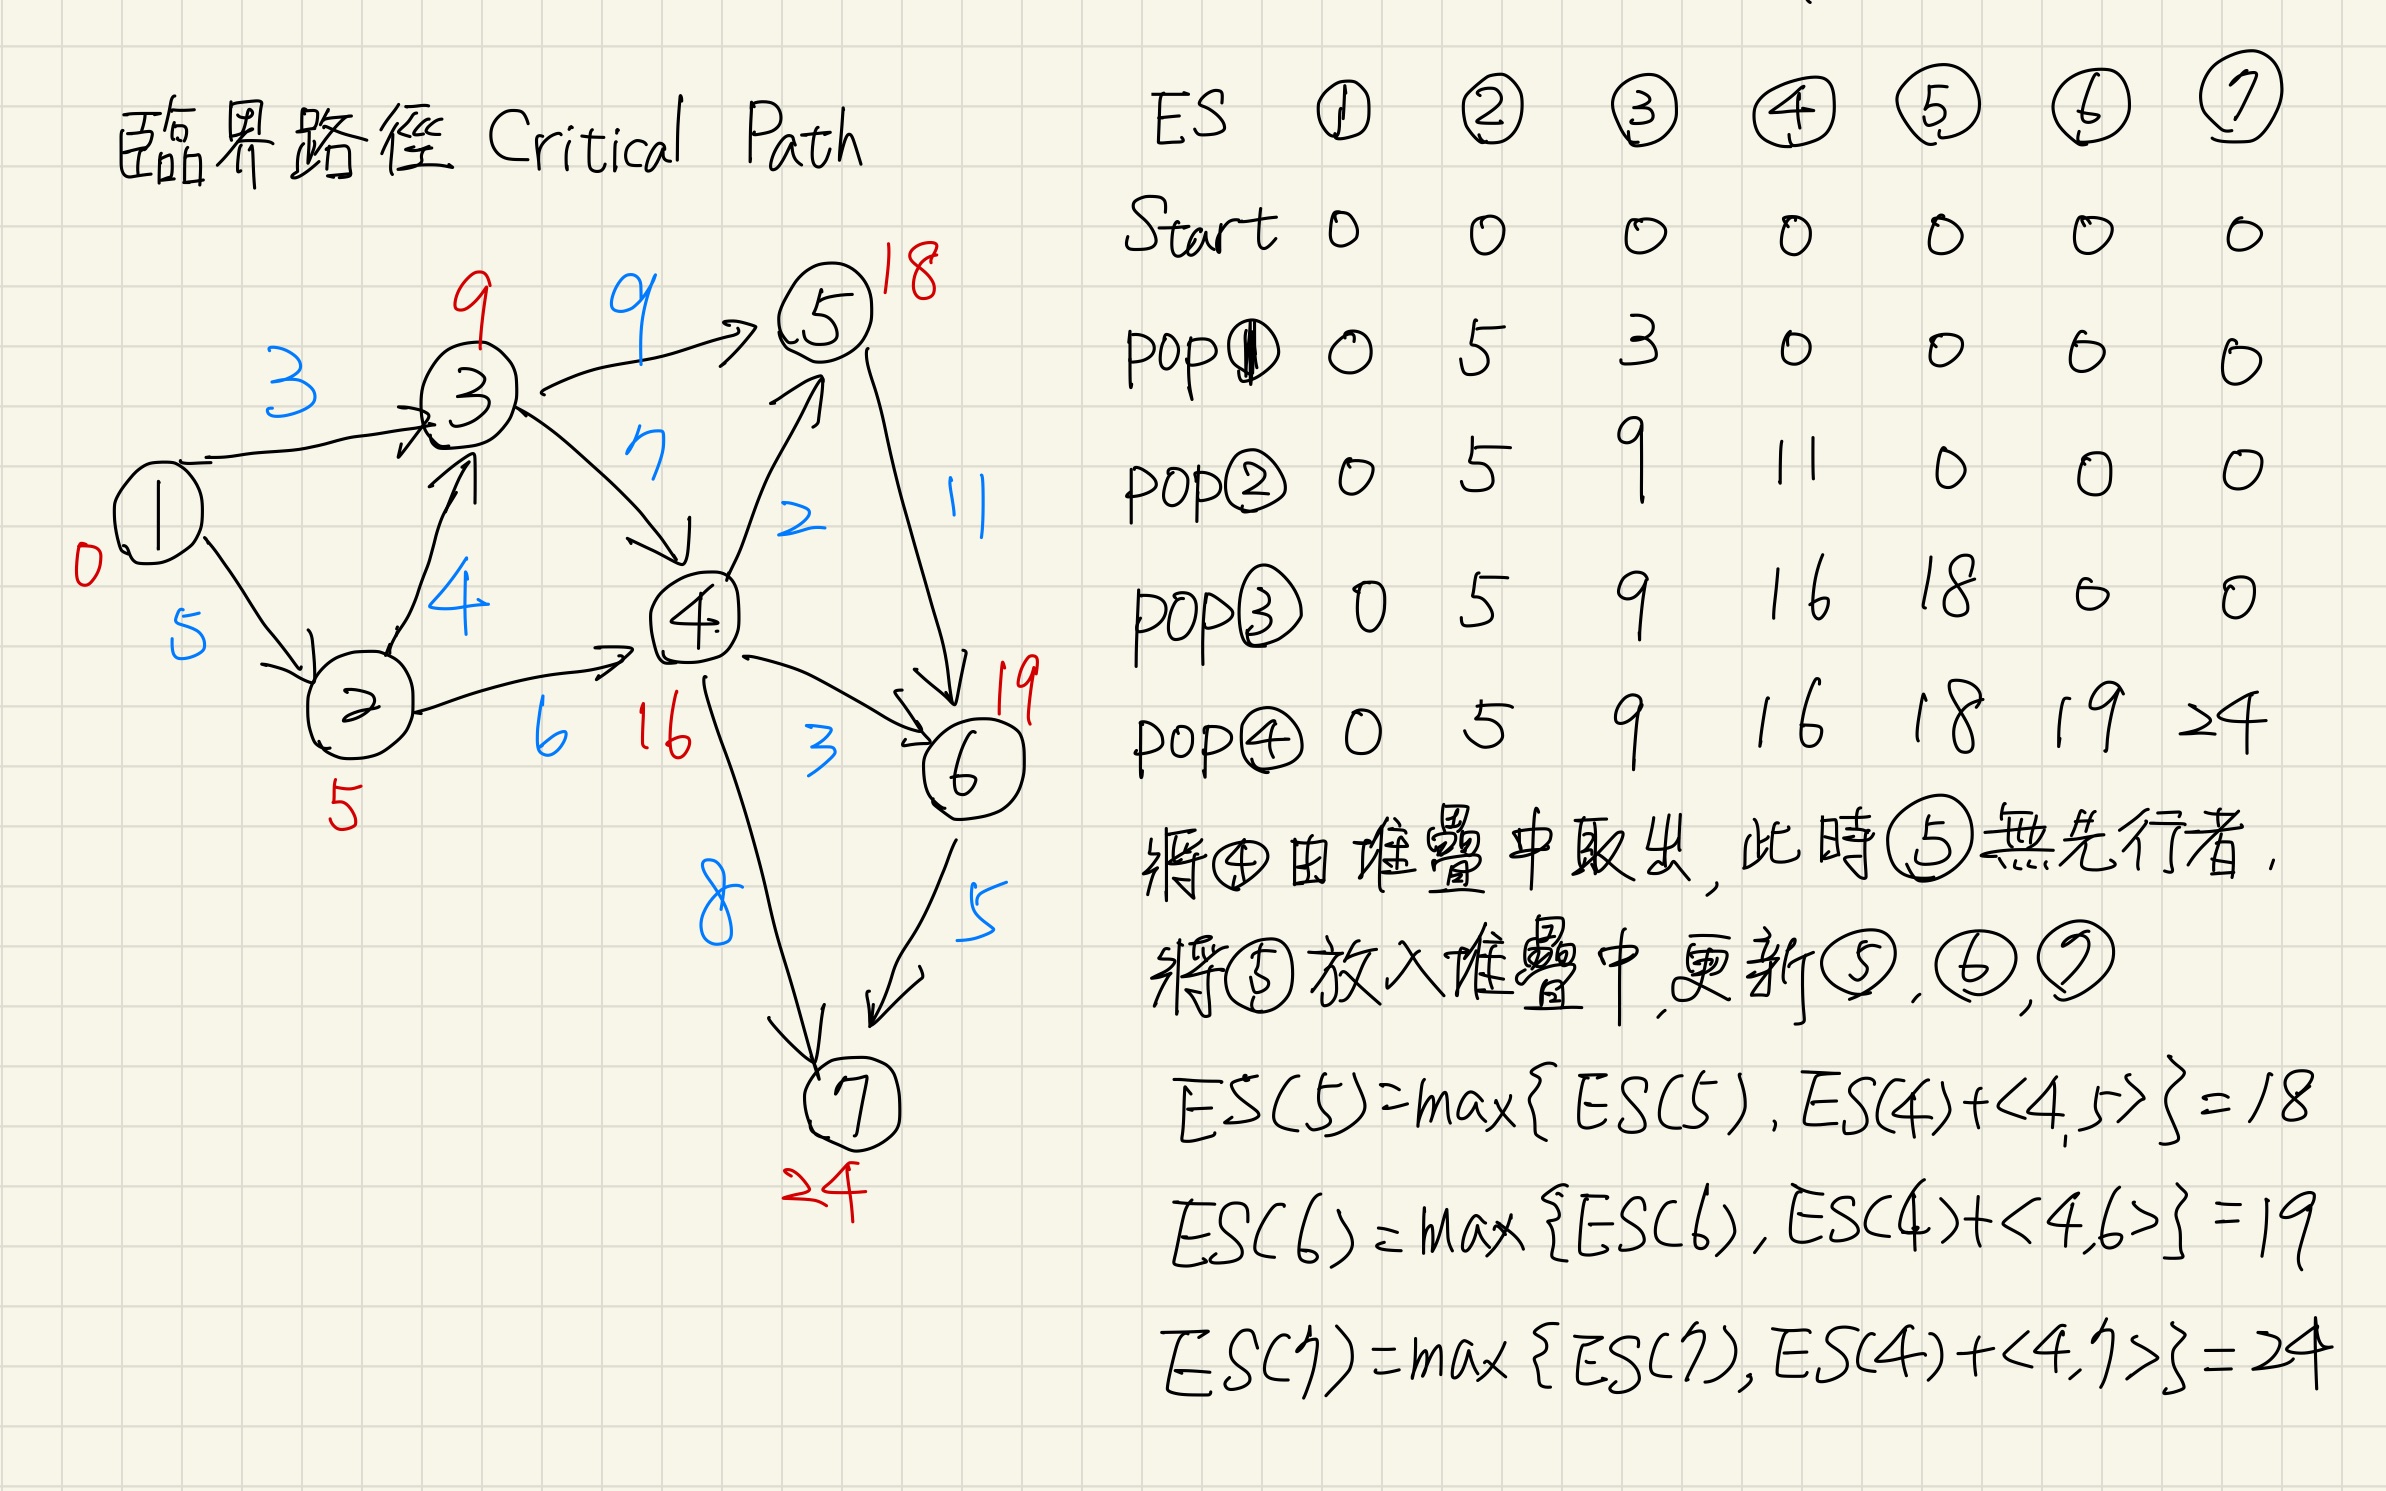 臨界路徑 Critical Path
9
18
3
9
3
5
7
1
2
11
0
5
4
4
2
6
16
3
19
6
5
8
5
7
24
ES ① ② ③ ④ ⑤ ⑥ ⑦
Start 0 0 0 0 0 0 0
pop① 0 5 3 0 0 0 0
pop② 0 5 9 11 0 0 0
pop③ 0 5 9 16 18 0 0
pop④ 0 5 9 16 18 19 24
將④由堆疊中取出,此時⑤無先行者.
將⑤放入堆疊中,更新⑤,⑥,⑦
ES(5)=max{ES(5), ES(4)+<4,5>}=18
ES(6)=max{ES(6), ES(4)+<4,6>}=19
ES(7)=max{ES(7), ES(4)+<4,7>}=24